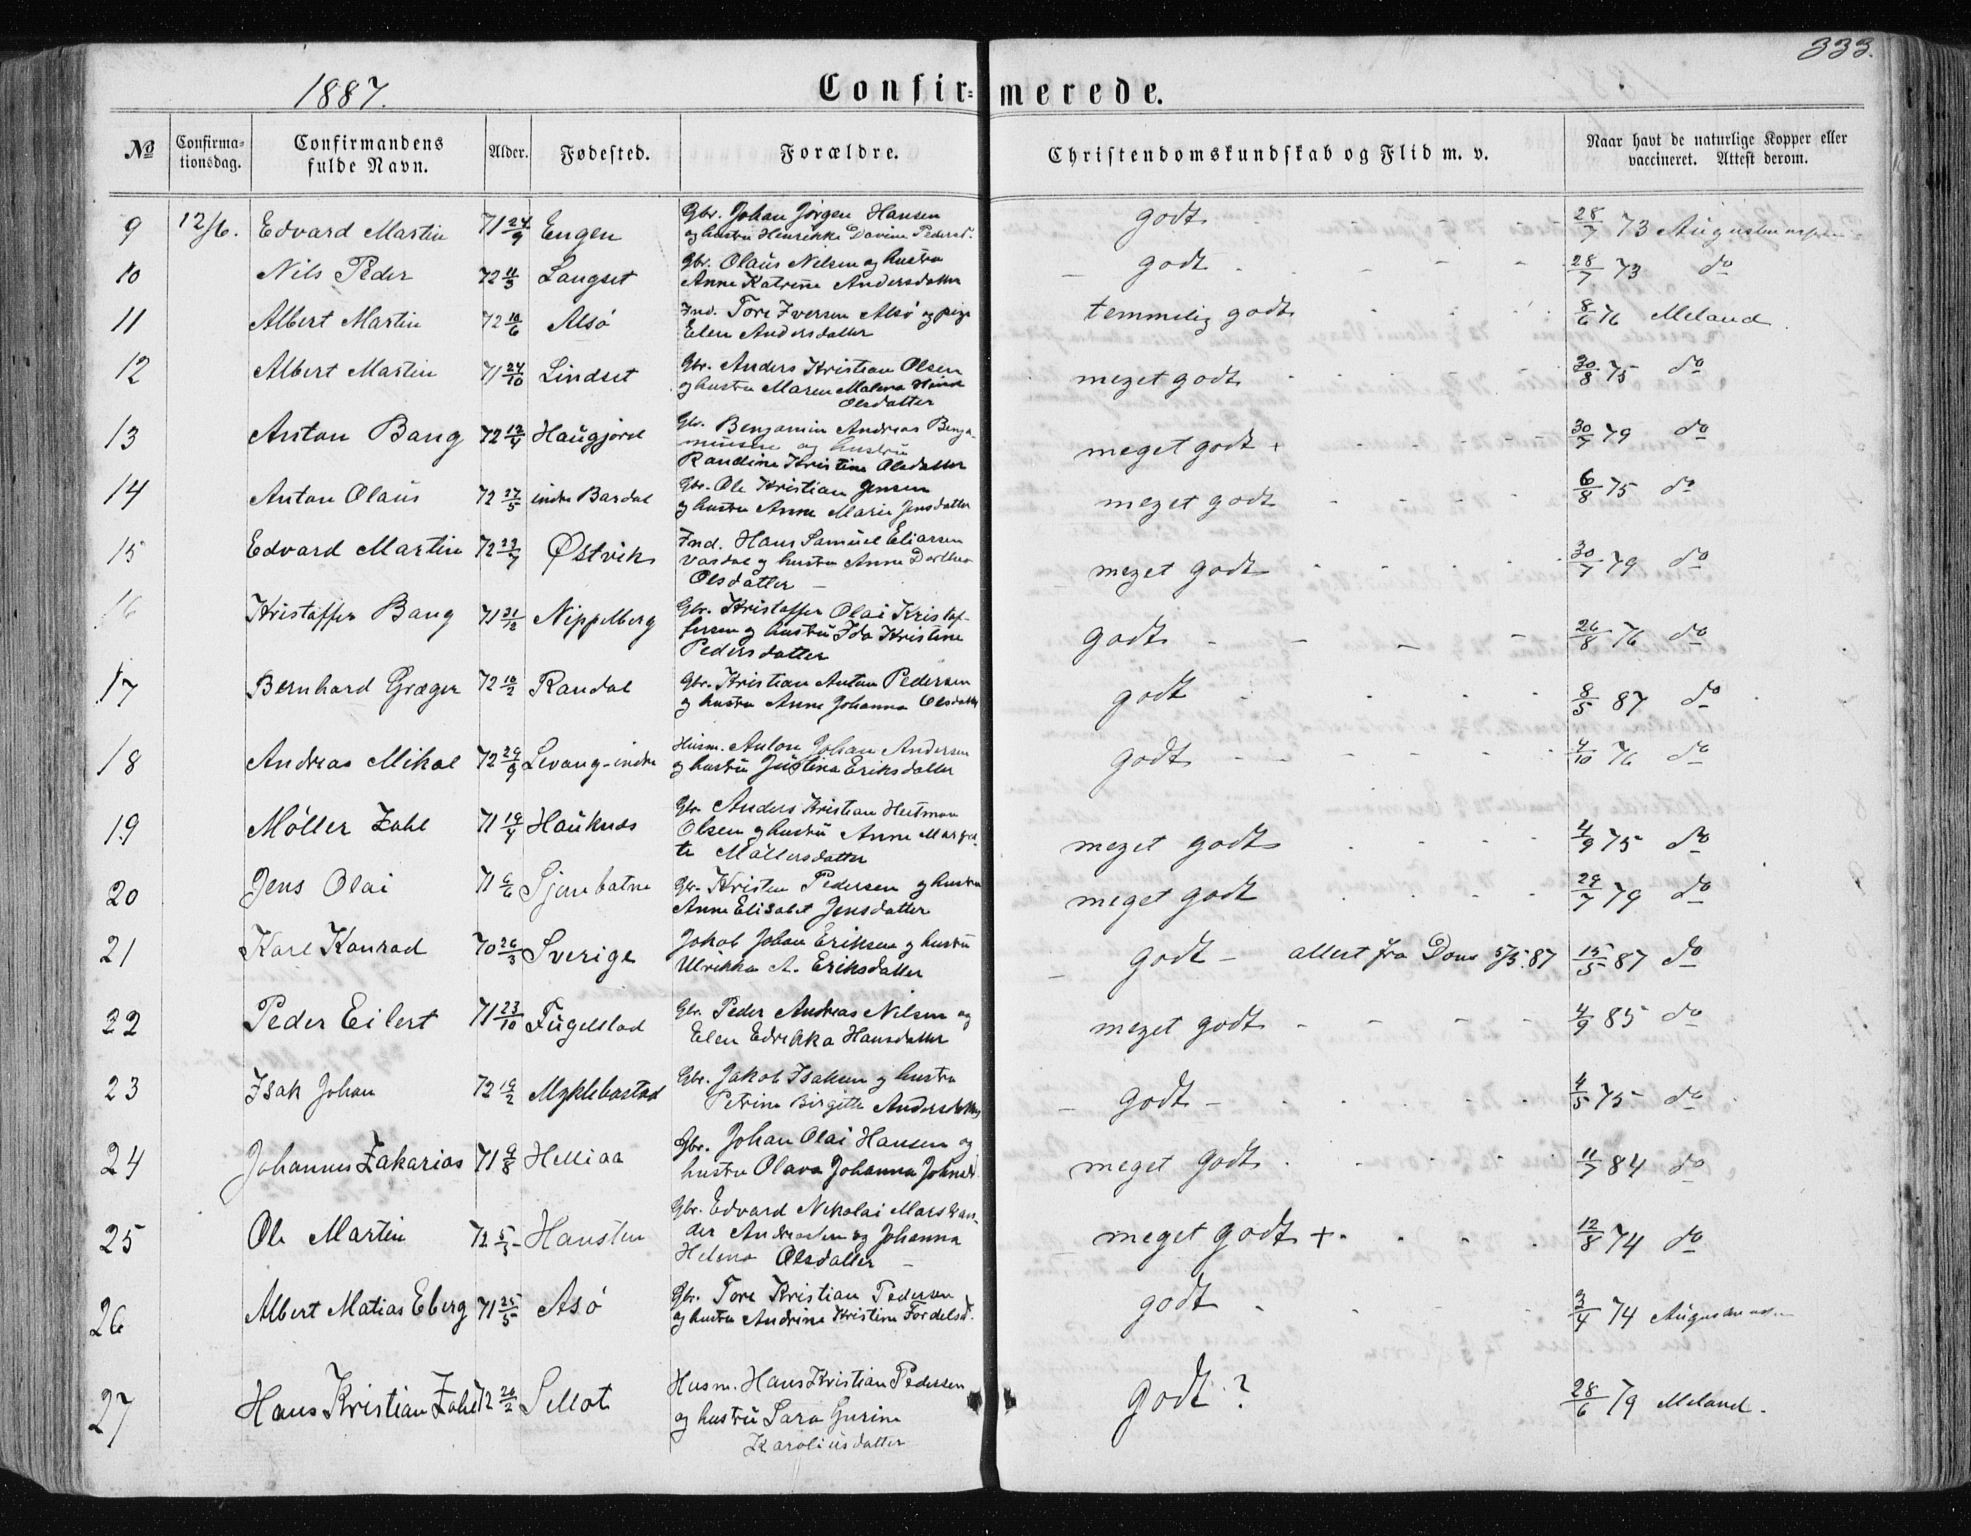 333.
1887.
Confir=merede.
№
Confirma=
tionsdag.
Confirmandens
fulde Navn.
Alder.
Fødested.
Forældre.
Christendomskundskab og Flid m. v.
Naar havt de naturlige Kopper eller
vaccineret. Attest derom.
9 12/6. Edvard Martin 71 24/9 Engen Gbr. Johan Jørgen Hansen godt 28/7 73
og hustru Henrikke Davine Pedersd.
10 Nils Peder 72 11/3 Langset Gbr. Olaus Nelsen og hustru godt 28/7 73 do
Anne Katrine Andersdatter
11 Albert Martin 72 10/6 Alsø Ind. Tore Iversen Alsø og pige temmelig godt 8/6 76 Meland.
Elen Andersdatter
12 Albert Martin 71 24/10 Lindset Gbr. Anders Kristian Olsen meget godt 30/8 75 do
og hustru Maren Malena
Olsdatter
13 Anton Bang 72 12/4 Haugjord Gbr. Benjamin Andreas Benja-
minsen og hustru meget godt + 30/7 79 do
Randine Kristine Olsdatter
14 Anton Olaus 72 27/5 indre Bardal Gbr. Ole Kristian Jensen meget godt 6/8 75 do
og hustru Anne Marie Jensdatter
15 Edvard Martin 72 22/7 Østvik Ind. Hans Samuel Eliassen meget godt 30/7 79 do
Vasdal og hustru Anne Dorthea
Olsdatter
16 Kristoffer Bang 71 21/12 Nippelberg Gbr. Kristoffer Olai Kristof-
fersen og hustru Ida Kristine godt 26/8 76 do
Pedersdatter
17 Bernhard Græger 72 10/2 Randal Gbr. Kristian Anton Pedersen godt 8/5 87 do
og hustru Anne Johanna Olsdatter
18 Andreas Mikal 72 29/9 Levang-indre Husm. Anton Johan Andersen godt 4/10 76 do
og hustru Justina Eriksdatter
19 Møller Zahl 71 19/4 Hauknes Gbr. Anders Kristian Heitman
Olsen og hustru Anne Margre-
te Møllersdatter meget godt 4/9 75 do
20 Jens Olai 71 6/6 Sjonbotne Gbr. Kristen Pedersen og hustru meget godt 29/7 79 do
Anne Elisabet Jensdatter
21 Karl Konrad 70 26/3 Sverige Jakob Johan Eriksen og hustru godt - attest fra Dons 5/5.87 15/5 87 do
Ulrikka A. Eriksdatter
22 Peder Eilert 71 23/10 Fugelstad Gbr. Peder Andreas Nilsen og meget godt 4/9 85 do
Elen Edrikka Hansdatter
23 Isak Johan 72 19/2 Myklebostad Gbr. Jakob Isaksen og hustru godt - 4/5 75 do
Petrine Birgitte Andersdatter
24 Johannes Zakarias 71 9/8 Helliaa Gbr. Johan Olai Hansen og meget godt 11/7 84 do
hustru Olava Johanna Johnsd.
25 Ole Martin 72 5/5 Hausten Gbr. Edvard Nikolai
Andreassen og Johanna meget godt + 12/8 74 do
Helena Olsdatter
26 Albert Matias Eberg 71 25/5 Asø Gbr. Tore Kristian Pedersen godt 3/4 74
og hustru Andrina Kristine Fordelsd.
27 Hans Kristian Zahl 72 26/2 Sellot Husm. Hans Kristian Pedersen godt ? 28/6 79 Meland.
og hustru Sara Gurine
Karoliusdatter